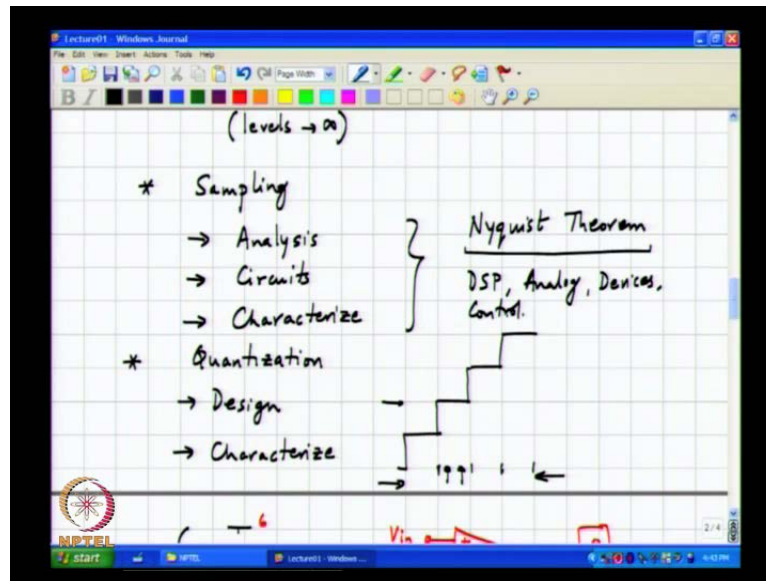 Lecture01 - Windows Journal
File Edit View Insert Actions Tools Help
Page Width
B I
(levels → ∞)
* Sampling
→ Analysis
→ Circuits
→ Characterize
Nyquist Theorem
DSP, Analog, Devices,
Control.
* Quantization
→ Design
→ Characterize
6
Vin
2/4
NPTEL
start
NPTEL
Lecture01 - Windows ...
4:43 PM